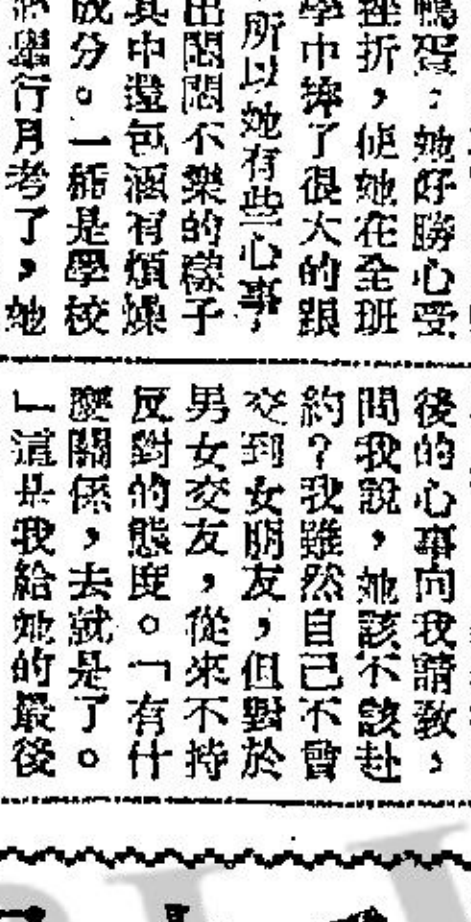 鴨蛋；她好勝心受
挫折，使她在全班
學中摔了很大的跟
所以她有些心事，
出悶悶不樂的樣子
其中還包涵有煩燥
成分。一經是學校
舉行月考了，她
後的心事向我請教，
問我說，她該不該赴
約？我雖然自己不曾
交到女朋友，但對於
男女交友，從來不持
反對的態度。「有什
麼關係，去就是了。
」這是我給她的最後